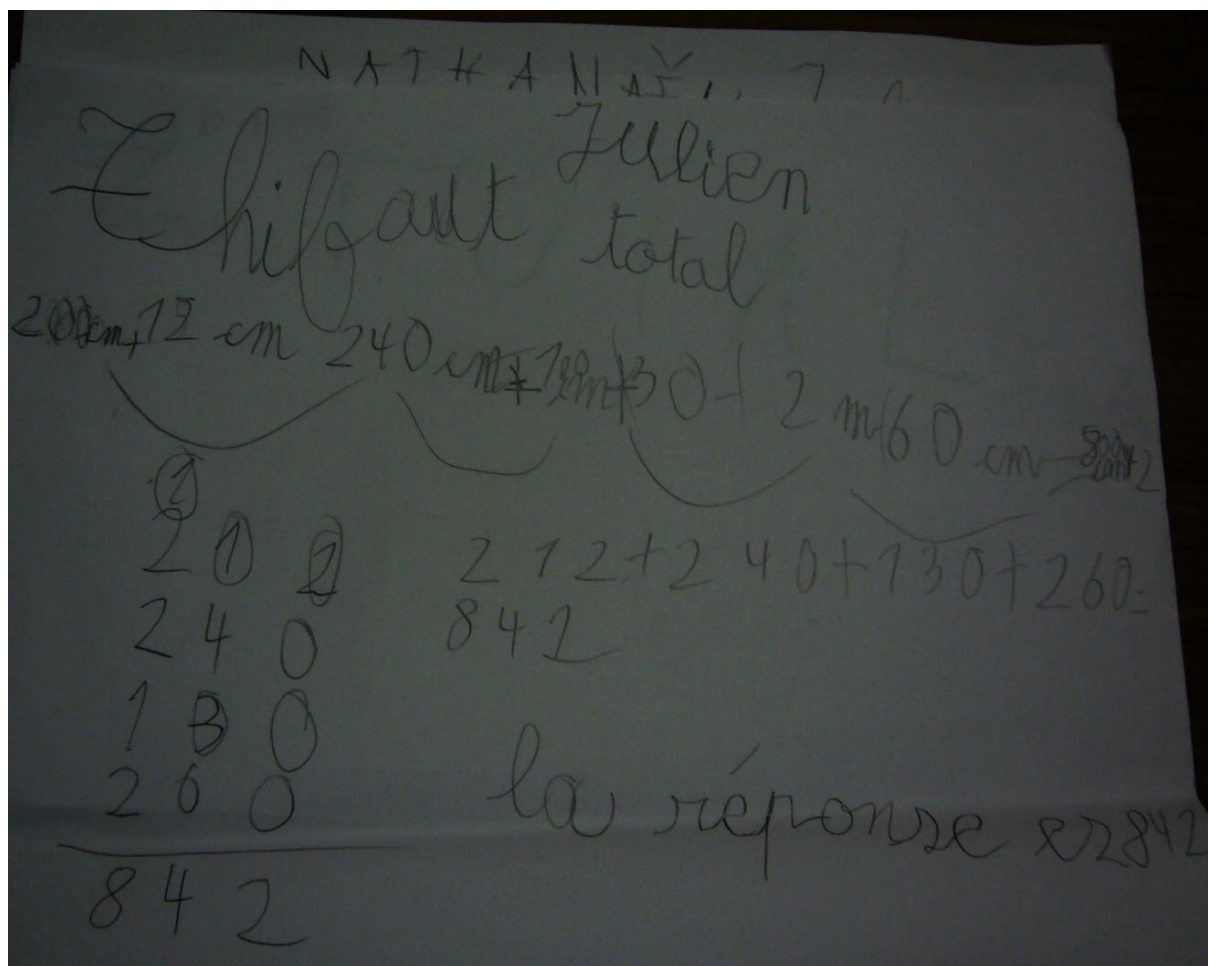 NATHANAË
Thibault Julien
total
200cm+12 cm 240 cm 130+ 2 m 60 cm
2 1 2
2 4 0
1 3 0
2 6 0
8 4 2
212+240+130+260=
842
la réponse es 842